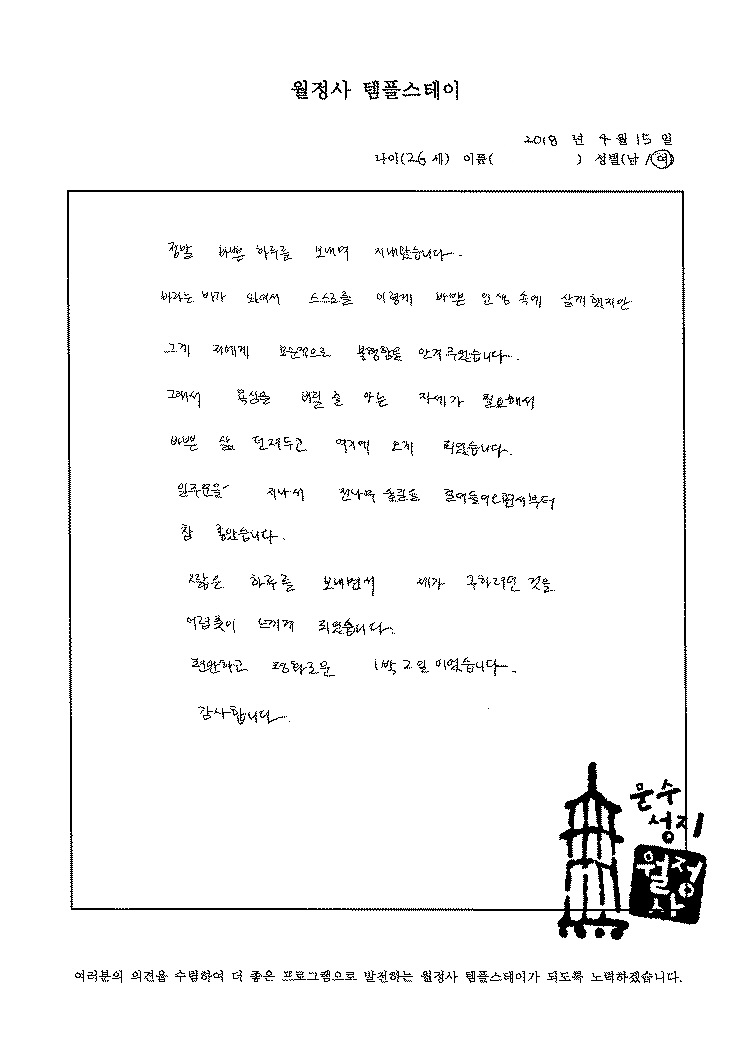 월정사 템플스테이
2018 년 4 월 15 일
나이(26 세) 이름( ) 성별(남 / 여)
정말 바쁜 하루를 보내며 지내왔습니다.
바라는 바가 있어서 스스로를 이렇게 바쁜 인생 속에 살게 했지만
그게 저에게 모순적으로 불행함을 안겨주었습니다.
그래서 욕심을 버릴 줄 아는 자세가 필요해서
바쁜 삶 던져두고 여기에 오게 되었습니다.
일주문을 지나서 전나무 숲길을 걸어들어오면서부터
참 좋았습니다.
짧은 하루를 보내면서 제가 구하려던 것을
어렴풋이 느끼게 되었습니다.
편안하고 평화로운 1박 2일이었습니다.
감사합니다.
문수
성지
월정
사
여러분의 의견을 수렴하여 더 좋은 프로그램으로 발전하는 월정사 템플스테이가 되도록 노력하겠습니다.